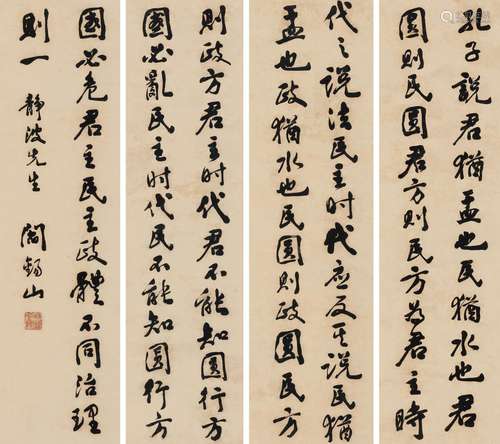 孔子說君猶盂也民猶水也君
圓則民圓君方則民方為君主時
代之說法民主时代應反其說民猶
盂也政猶水也民圓則政圓民方
則政方君主时代君不能知圓行方
國必亂民主时代民不能知圓行方
國必危君主民主政體不同治理
則一 靜波先生 閻錫山